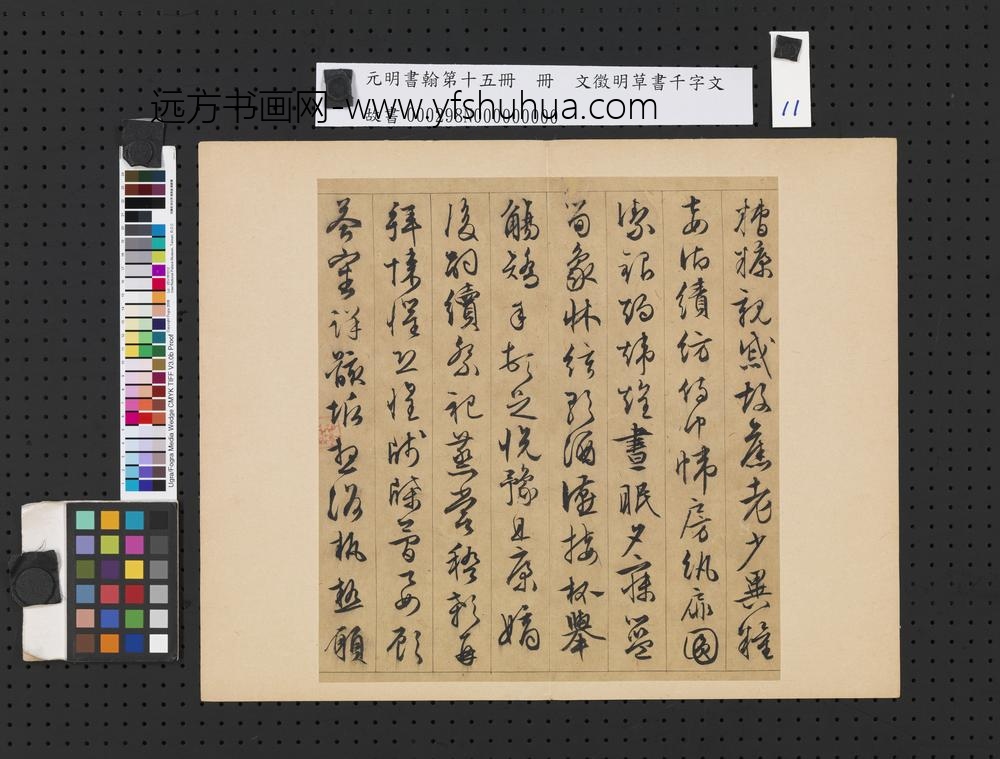 元明書翰第十五冊　冊　文徵明草書千字文
故書 000298N000000000
11
远方书画网-www.yfshuhua.com
糟糠親戚故舊老少異糧
妾御績紡侍巾帷房紈扇圓
潔銀燭煒煌晝眠夕寐藍
筍象牀絃歌酒讌接杯舉
觴矯手頓足悅豫且康嫡
後嗣續祭祀蒸嘗稽顙再
拜悚懼恐惶牋牒簡要顧
答審詳骸垢想浴執熱願
Ugra/Fogra Media Wedge CMYK TIFF V3.0b Proof